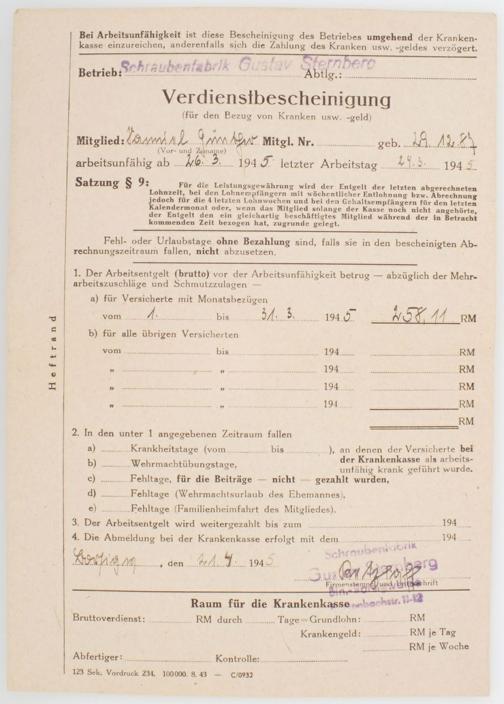 Bei Arbeitsunfähigkeit ist diese Bescheinigung des Betriebes umgehend der Kranken-
kasse einzureichen, anderenfalls sich die Zahlung des Kranken usw. -geldes verzögert.
Betrieb: Schraubenfabrik Gustav Sternberg Abtlg.:
Verdienstbescheinigung
(für den Bezug von Kranken usw. -geld)
Mitglied: Günther Mitgl. Nr. geb. 29.12.87
(Vor- und Zuname)
arbeitsunfähig ab 26.3. 1945 letzter Arbeitstag 24.3. 1945
Satzung § 9: Für die Leistungsgewährung wird der Entgelt der letzten abgerechneten
Lohnzeit, bei den Lohnempfängern mit wöchentlicher Entlohnung bzw. Abrechnung
jedoch für die 4 letzten Lohnwochen und bei den Gehaltsempfängern für den letzten
Kalendermonat oder, wenn das Mitglied solange der Kasse noch nicht angehörte,
der Entgelt den ein gleichartig beschäftigtes Mitglied während der in Betracht
kommenden Zeit bezogen hat, zugrunde gelegt.
Fehl- oder Urlaubstage ohne Bezahlung sind, falls sie in den bescheinigten Ab-
rechnungszeitraum fallen, nicht abzusetzen.
1. Der Arbeitsentgelt (brutto) vor der Arbeitsunfähigkeit betrug — abzüglich der Mehr-
arbeitszuschläge und Schmutzzulagen —
a) für Versicherte mit Monatsbezügen
vom 1. bis 31. 3. 1945 258,11 RM
b) für alle übrigen Versicherten
vom bis 194 RM
„ „ 194 RM
„ „ 194 RM
„ „ 194 RM
RM
Heftrand
2. In den unter 1 angegebenen Zeitraum fallen
a) Krankheitstage (vom bis ), an denen der Versicherte bei
der Krankenkasse als arbeits-
unfähig krank geführt wurde.
b) Wehrmachtübungstage,
c) Fehltage, für die Beiträge — nicht — gezahlt wurden,
d) Fehltage (Wehrmachtsurlaub des Ehemannes),
e) Fehltage (Familienheimfahrt des Mitgliedes).
3. Der Arbeitsentgelt wird weitergezahlt bis zum 194
4. Die Abmeldung bei der Krankenkasse erfolgt mit dem 194
, den 21.4. 1945
Schraubenfabrik
Gustav Sternberg
Firmenstempel und Unterschrift
Raum für die Krankenkasse
Bruttoverdienst: RM durch Tage = Grundlohn: RM
Krankengeld: RM je Tag
RM je Woche
Abfertiger: Kontrolle:
123 Sek. Vordruck Z34. 100000. 8. 43 — C/0932